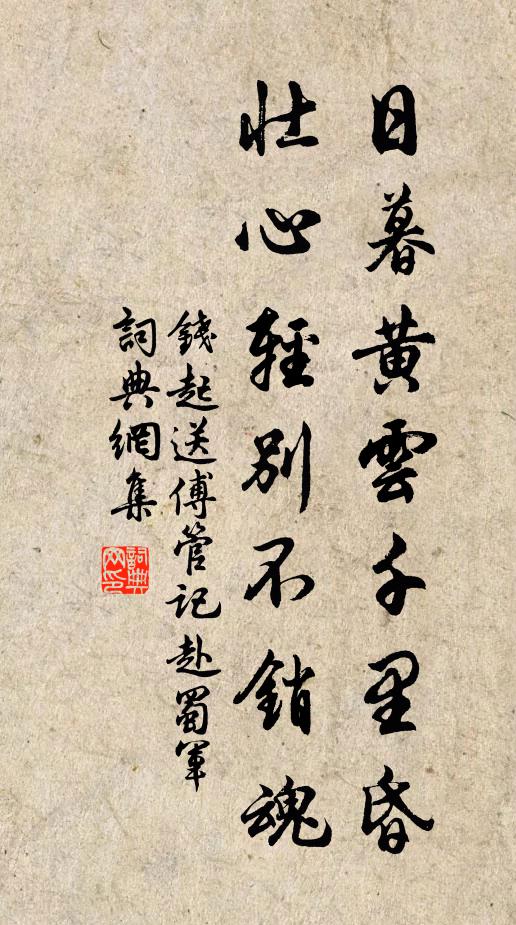 日暮黄雲千里昏
壮心輕別不銷魂
錢起送傅管記赴蜀軍
詞典網集
詞典网印